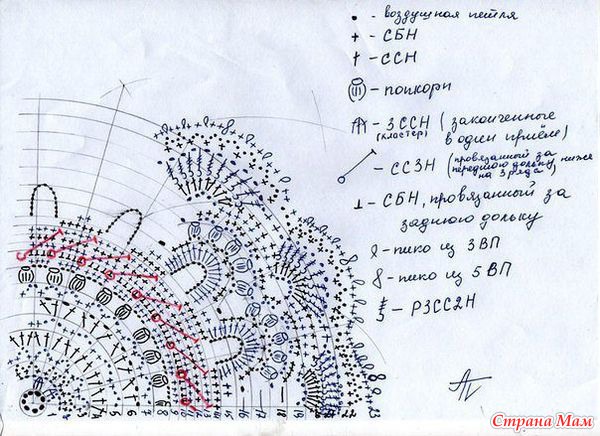 - воздушная петля
+ - СБН
† - ССН
- попкорн
- 3ССН (законченные
(кластер) в один приём)
- СС3Н (провязанный за
переднюю дольку ниже
на 3 ряда)
⊥ - СБН, провязанный за
заднюю дольку
- пико из 3 ВП
- пико из 5 ВП
- Р3СС2Н
Страна Мам